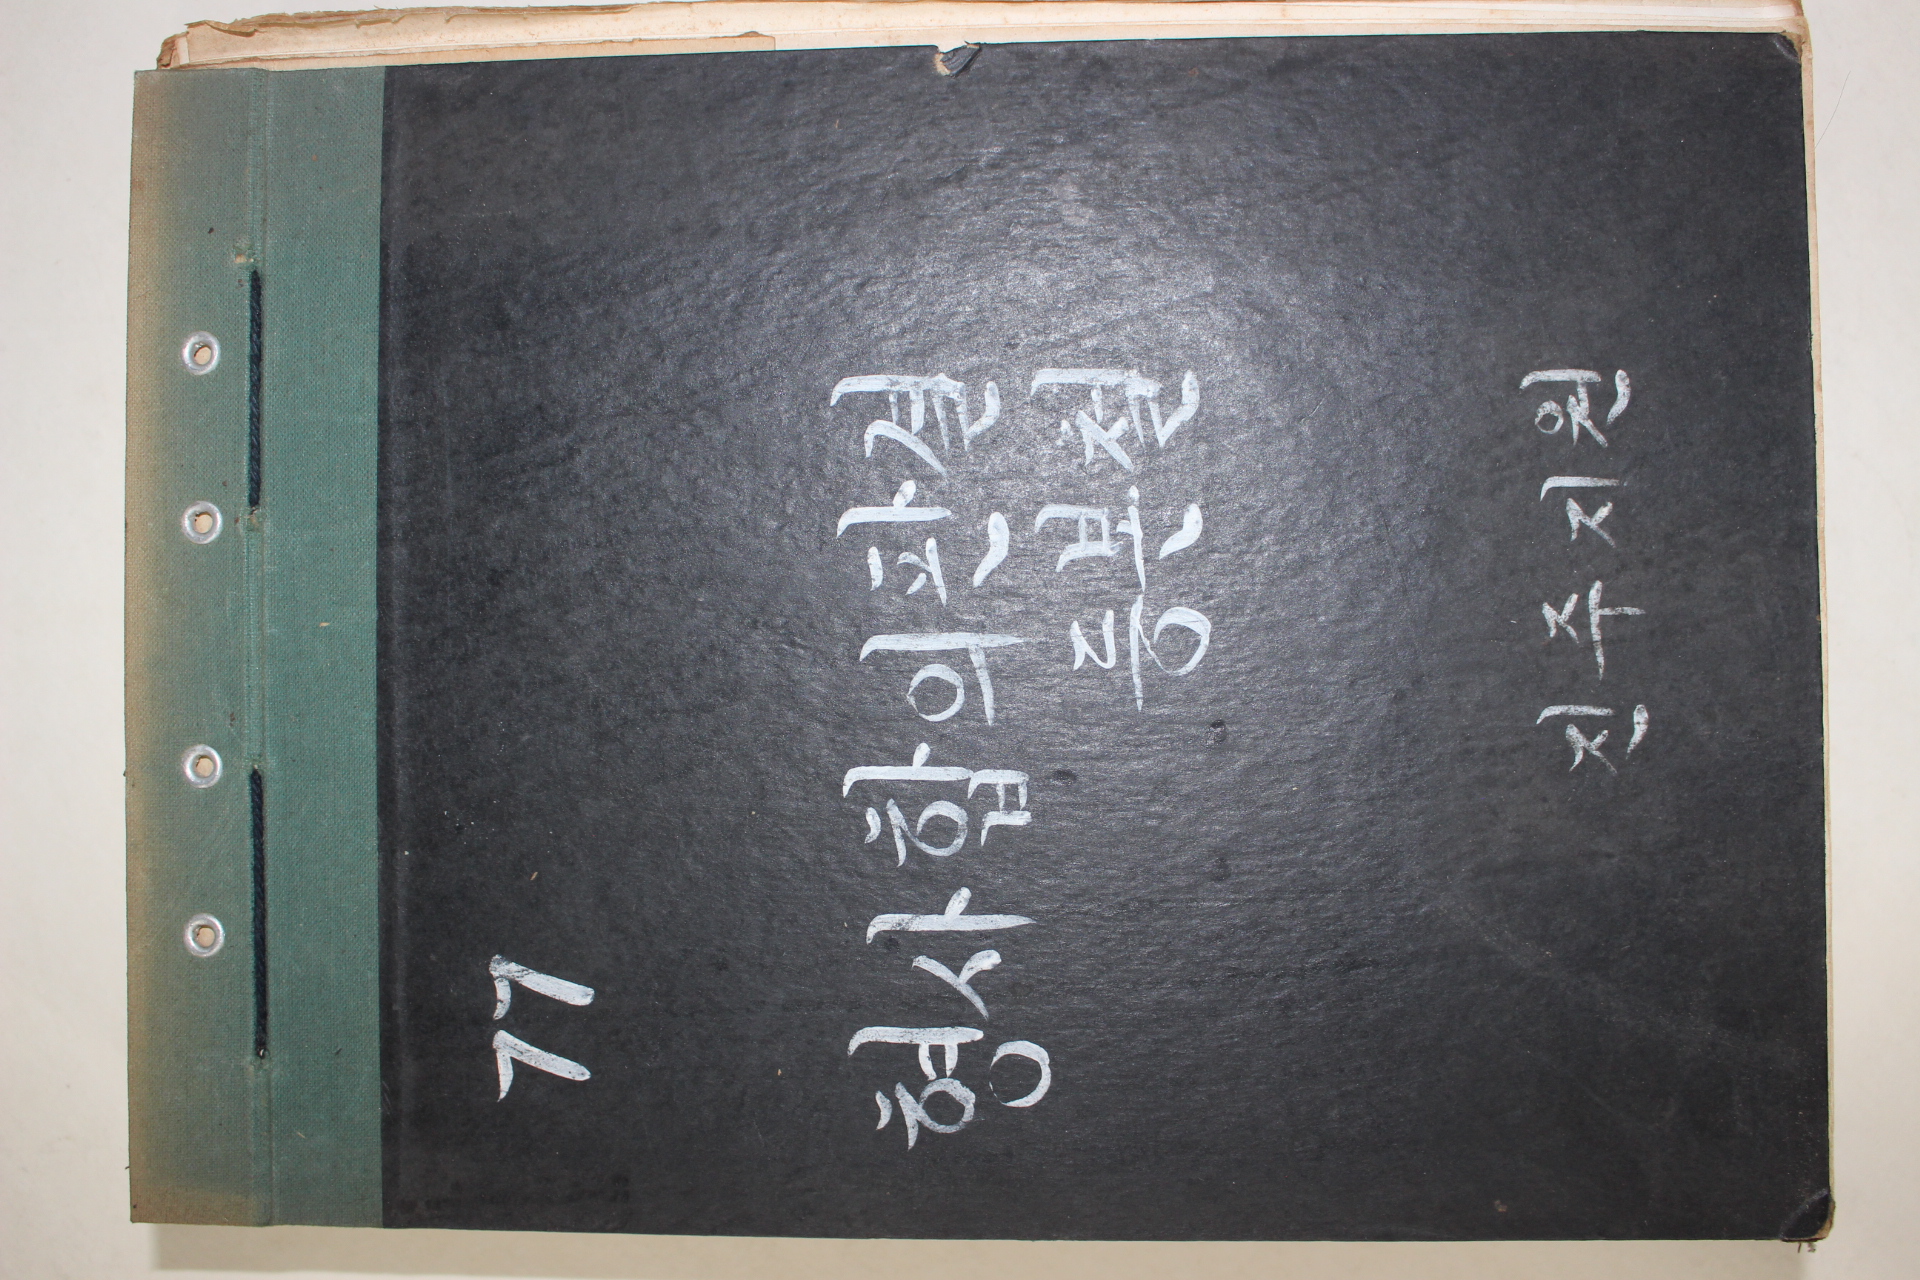 77
형사합의판결
등본철
진주지원